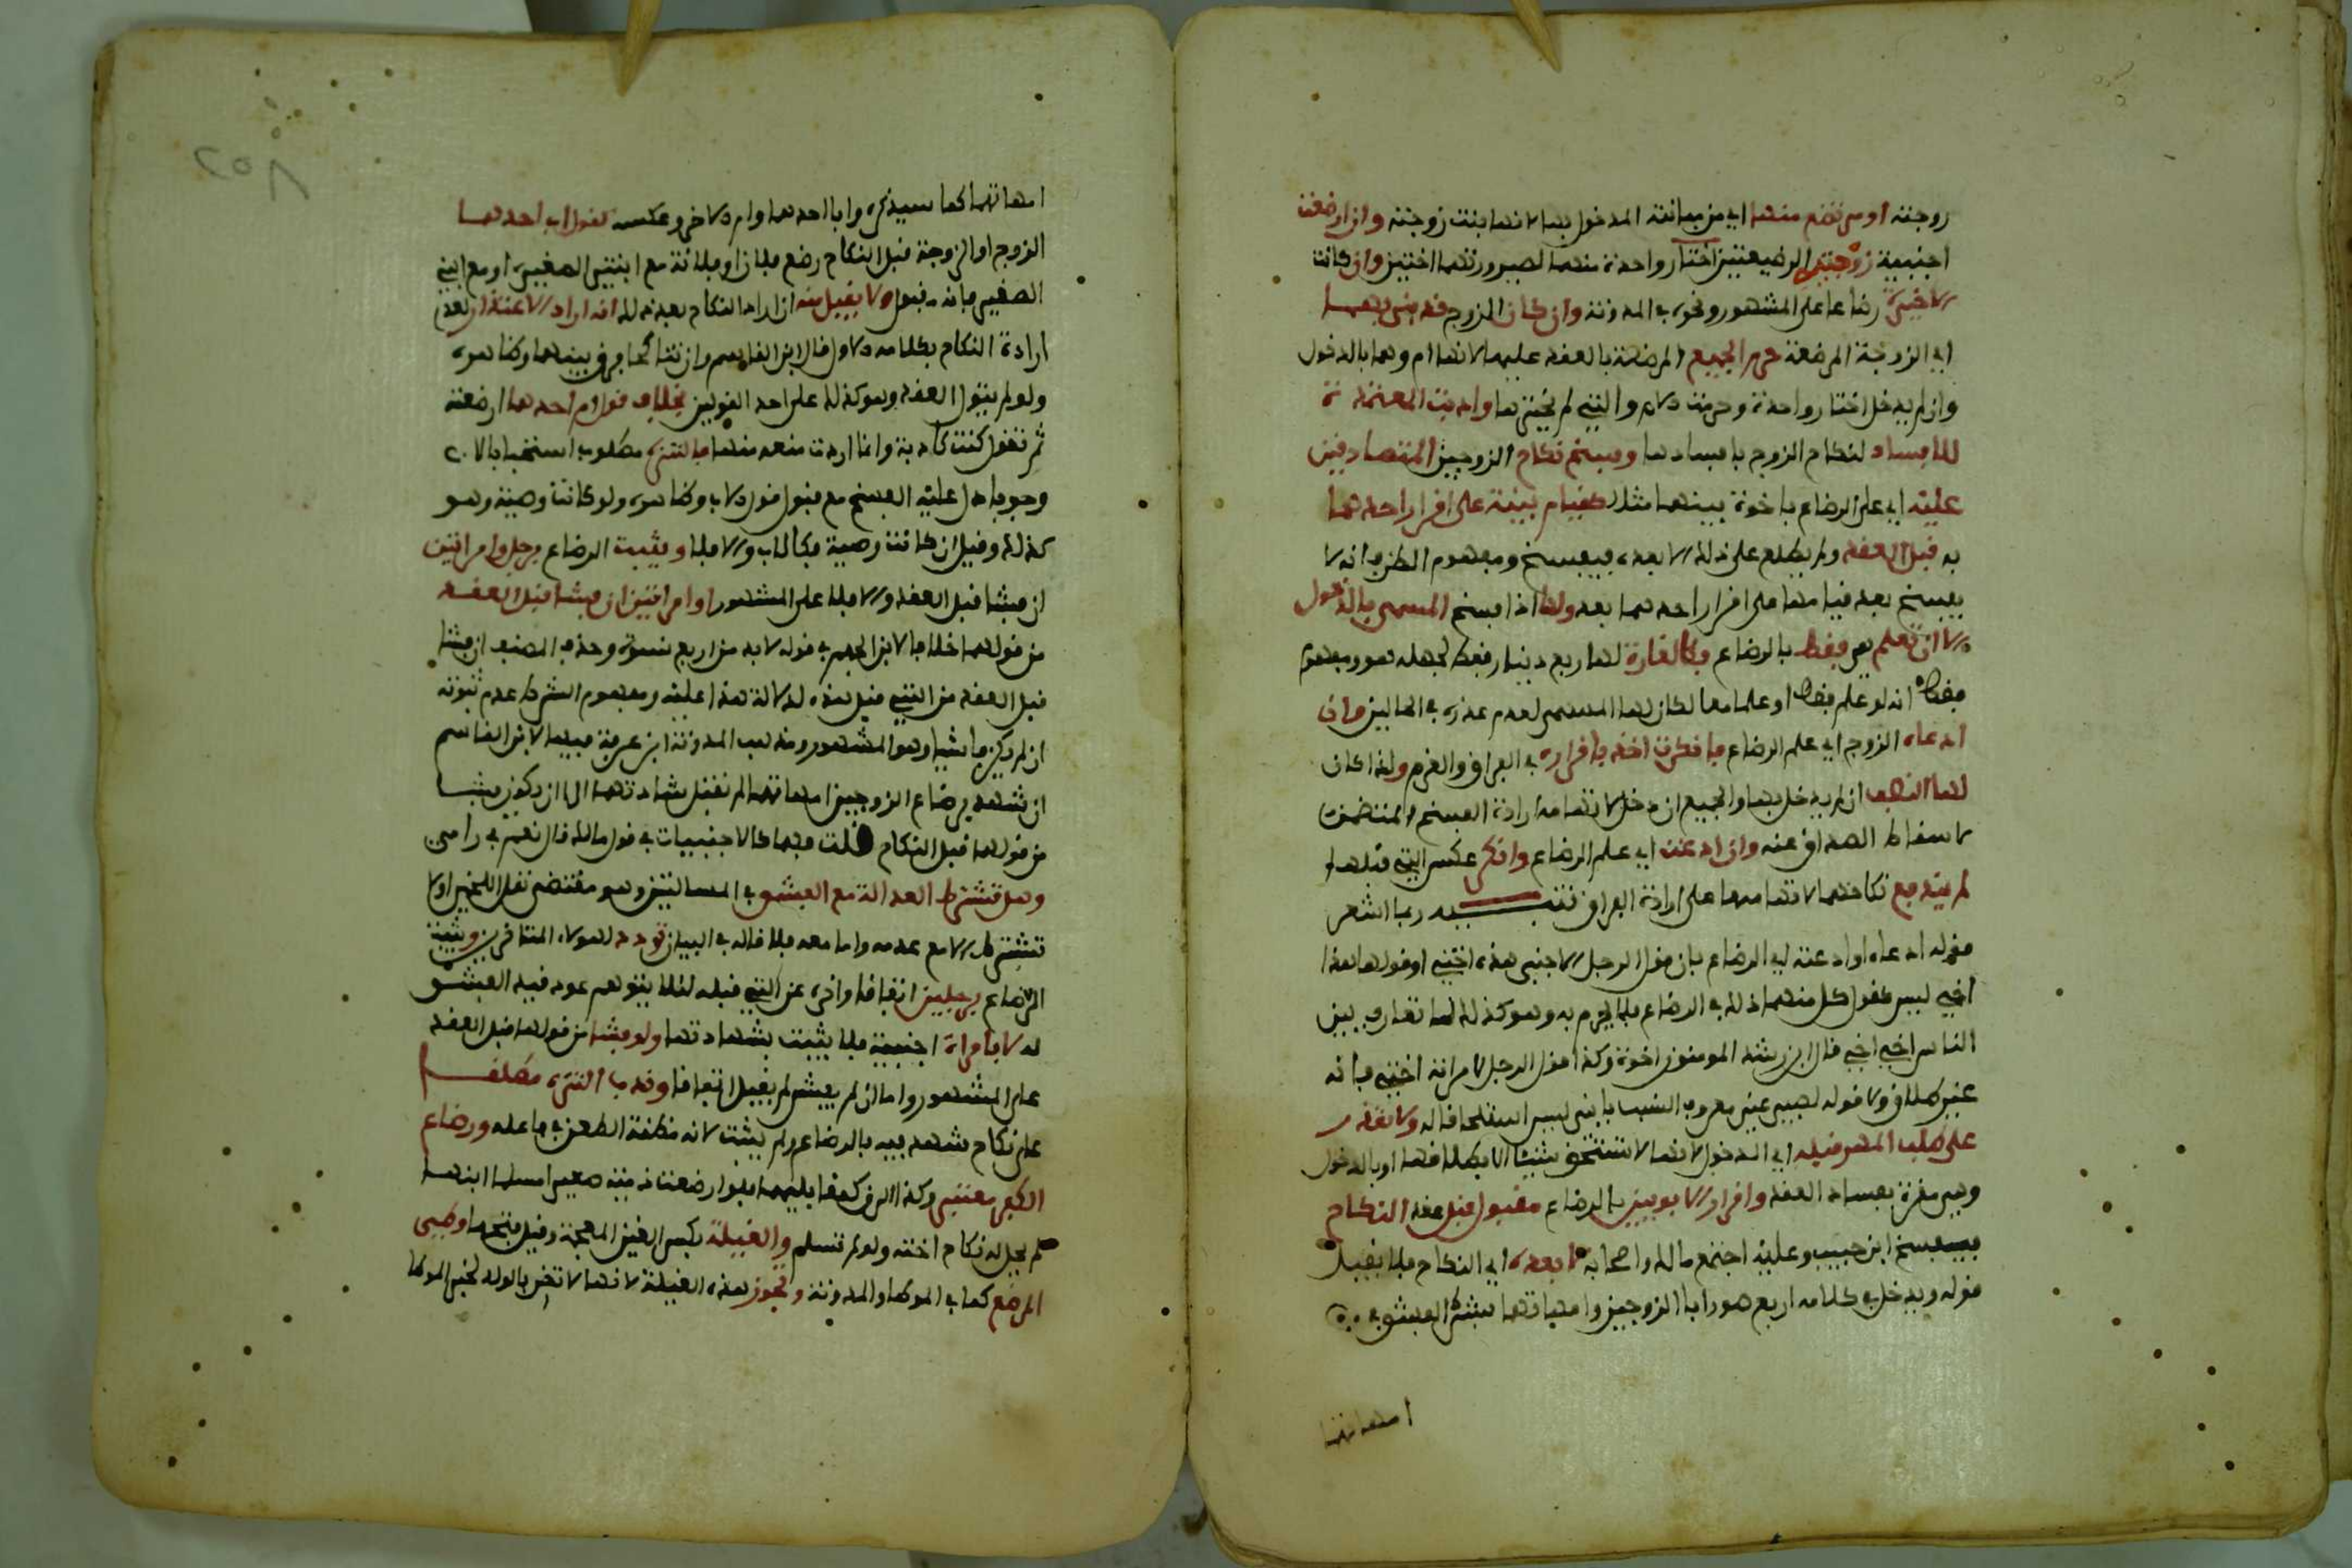 زوجته او مرتضع منها اي من مبانته المدخول بها لانها بنت زوجته وان ارضعت
اجنبية زوجتيه الرضيعتين اختار واحدة منهما لصيرورتهما اختين وان كانت
الاخيرة رضاعا على المشهور ونحوه في المدونة وان كان الزوج قد بنى بها
اي الزوجة المرضعة حرم الجميع المرضعة بالعقد عليهما لانها ام وهما بالدخول
وان لم يدخل اختار واحدة وحرمت الام والتي لم يخترها وادبت المتعمدة
للافساد لنكاح الزوج بافسادها وفسخ نكاح الزوجين المتصادقين
عليه اي على الرضاع باخوة بينهما مثلا كقيام بينة على اقرار احدهما
به قبل العقد ولم يطلع على ذلك الا بعده فيفسخ ومفهوم الظرف انه لا
يفسخ بعد قيامها على اقرار احدهما بعد ولها اذا فسخ المسمى بالدخول
الا ان تعلم هي فقط بالرضاع فكالغارة لها ربع دينار فقط لجهله هو ومفهوم
فقط انه لو علم فقط او علما معا لكان لها المسمى لعدم عذره في الحالين وان
ادعاه الزوج اي علم الرضاع فانكرت اخذ باقراره في الفراق والغرم ولذا كان
لها النصف ان لم يدخل بها والجميع ان دخل لاتهامه ارادة الفسخ المتضمن
لاسقاط الصداق عنه وان ادعته اي علم الرضاع وانكر عكس التي قبلها
لم يندفع نكاحهما لاتهامها على ارادة الفراق تنبيه ربما اشعر
قوله ادعاه او ادعته اي الرضاع بان قول الرجل لاجنبي هذه اختي او قولها هذا
اخي ليس كقول كل منهما ذلك في الرضاع فلا يحرم به وهو كذلك لما تعارف بين
الناس اخي اخي قال ابن رشد المومنون اخوة وكذا قول الرجل لامراته اختي فانه
غير طلاق ولا قوله لصبي غير معروف النسب يا بني ليس استلحاقا له ولا تقدر
على طلب المهر قبله اي الدخول لانها لا تستحق شيئا الا بطلاقها او بالدخول
وهي مقرة بفساد العقد واقرار الابوين بالرضاع مقبول قبل عقد النكاح
فيفسخ ابن حبيب وعليه اجتمع مالك واصحابه لا بعده اي النكاح فلا يقبل
قوله ويدخل في كلامه اربع صور ابا الزوجين وامهاتهما بشرط الفشو في
امهاتهما
٢٥٨
امهاتهما كما سيذكره وابا احدهما وام الاخر وعكسه كقول ابي احدهما
الزوج او الزوجة قبل النكاح رضع فلان او فلانة مع ابنتي الصغيرة او مع ابني
الصغير فانه مقبول ولا يقبل منه ان اراد النكاح بعد ذلك انه اراد الاعتذار لعدم
ارادة النكاح بكلامه الاول قال ابن القاسم وان تناكحا فرق بينهما وظاهره
ولو لم يتول العقد وهو كذلك على احد القولين بخلاف قول ام احدهما ارضعته
ثم تقول كنت كاذبة وانما اردت منعه منها فالتنزه مطلوب استحبابا لا
وجوبا دل عليه الفسخ مع قبول قول الاب وظاهره ولو كانت وصية وهو
كذلك وقيل ان كانت وصية فكالاب والا فلا ويثبت الرضاع برجل وامراتين
ان فشا قبل العقد والا فلا على المشهور او امراتين ان فشا قبل العقد
من قولهما خلافا لابن الجهم في قوله لا بد من اربع نسوة وحذف المصنف ان فشا
قبل العقد من التي قبل هذه لدلالة هذا عليه ومفهوم الشرط عدم ثبوته
ان لم يكن فاشيا وهو المشهور ومذهب المدونة ابن عرفة فيها لابن القاسم
ان شهد برضاع الزوجين امهاتهما لم تقبل شهادتهما الا ان يكون فشا
من قولهما قبل النكاح قلت فهما كالاجنبيات في قول مالك قال نعم في رايي
وهل تشترط العدالة مع الفشو في المسالتين وهو مقتضى نقل اللخمي او لا
تشترط الا مع عدمه واما معه فلا قاله في البيان تردد لهولاء المتاخرين ويثبت
الرضاع برجلين اتفاقا واخره عن التي قبله لئلا يتوهم عود قيد الفشو
له لا بامراة اجنبية فلا يثبت بشهادتها ولو فشا من قولها قبل العقد
على المشهور واما ان لم يفش لم يقبل اتفاقا وندب التنزه مطلقا
على نكاح شهد فيه بالرضاع ولم يثبت لانه مظنة الطعن في فاعله ورضاع
الكفر معتبر وكذا الرق كهما فلو ارضعت ذمية صغيرا مسلما ابنها
لم يحل له نكاح اخته ولو لم تسلم والغيلة بكسر الغين المعجمة وقيل بفتحها وطئ
المرضع كما في الموطا والمدونة وتجوز هذه الغيلة لانها لا تضر بالولد لخبر الموطا